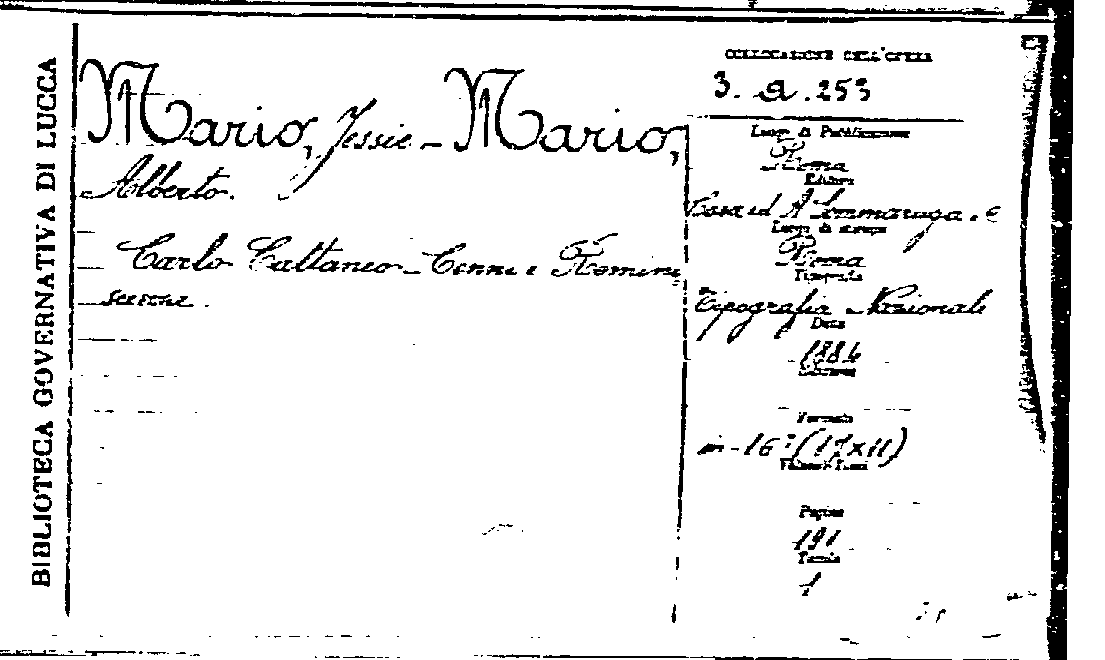 BIBLIOTECA GOVERNATIVA DI LUCCA
Mario, Jessie - Mario,
Alberto.
Carlo Cattaneo - Cenni e Remini
scenze.
COLLOCAZIONE DELL'OPERA
3. a. 253
Luogo di Pubblicazione
Roma
Editore
Casa ed A Sommaruga. e
Luogo di stampa
Roma
Tipografia
Tipografia Nazionale
Data
1884
Edizione
Formato
in-16° (17x11)
Pagine
191
Tavole
1